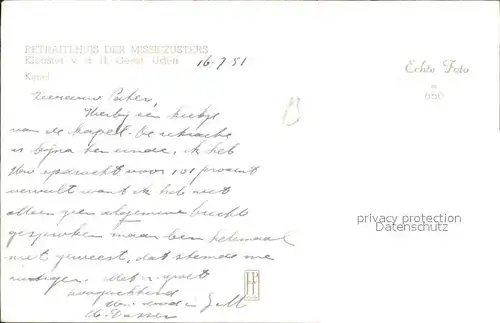 RETRAITEHUIS DER MISSIEZUSTERS
Klooster v. d. H. Geest Uden
Kapel
16-7 51
Echte Foto
650
Zeereerw Pater,
Hierbij een kiekje
van de kapel. De retraite
is bijna ten einde, ik heb
Uw opdracht voor 101 procent
vervult want ik heb niet
alleen geen algemene biecht
gesproken maar ben helemaal
niet geweest, dat stemde me
rustiger. Met vr. groet
hoogachtend
privacy protection
Datenschutz